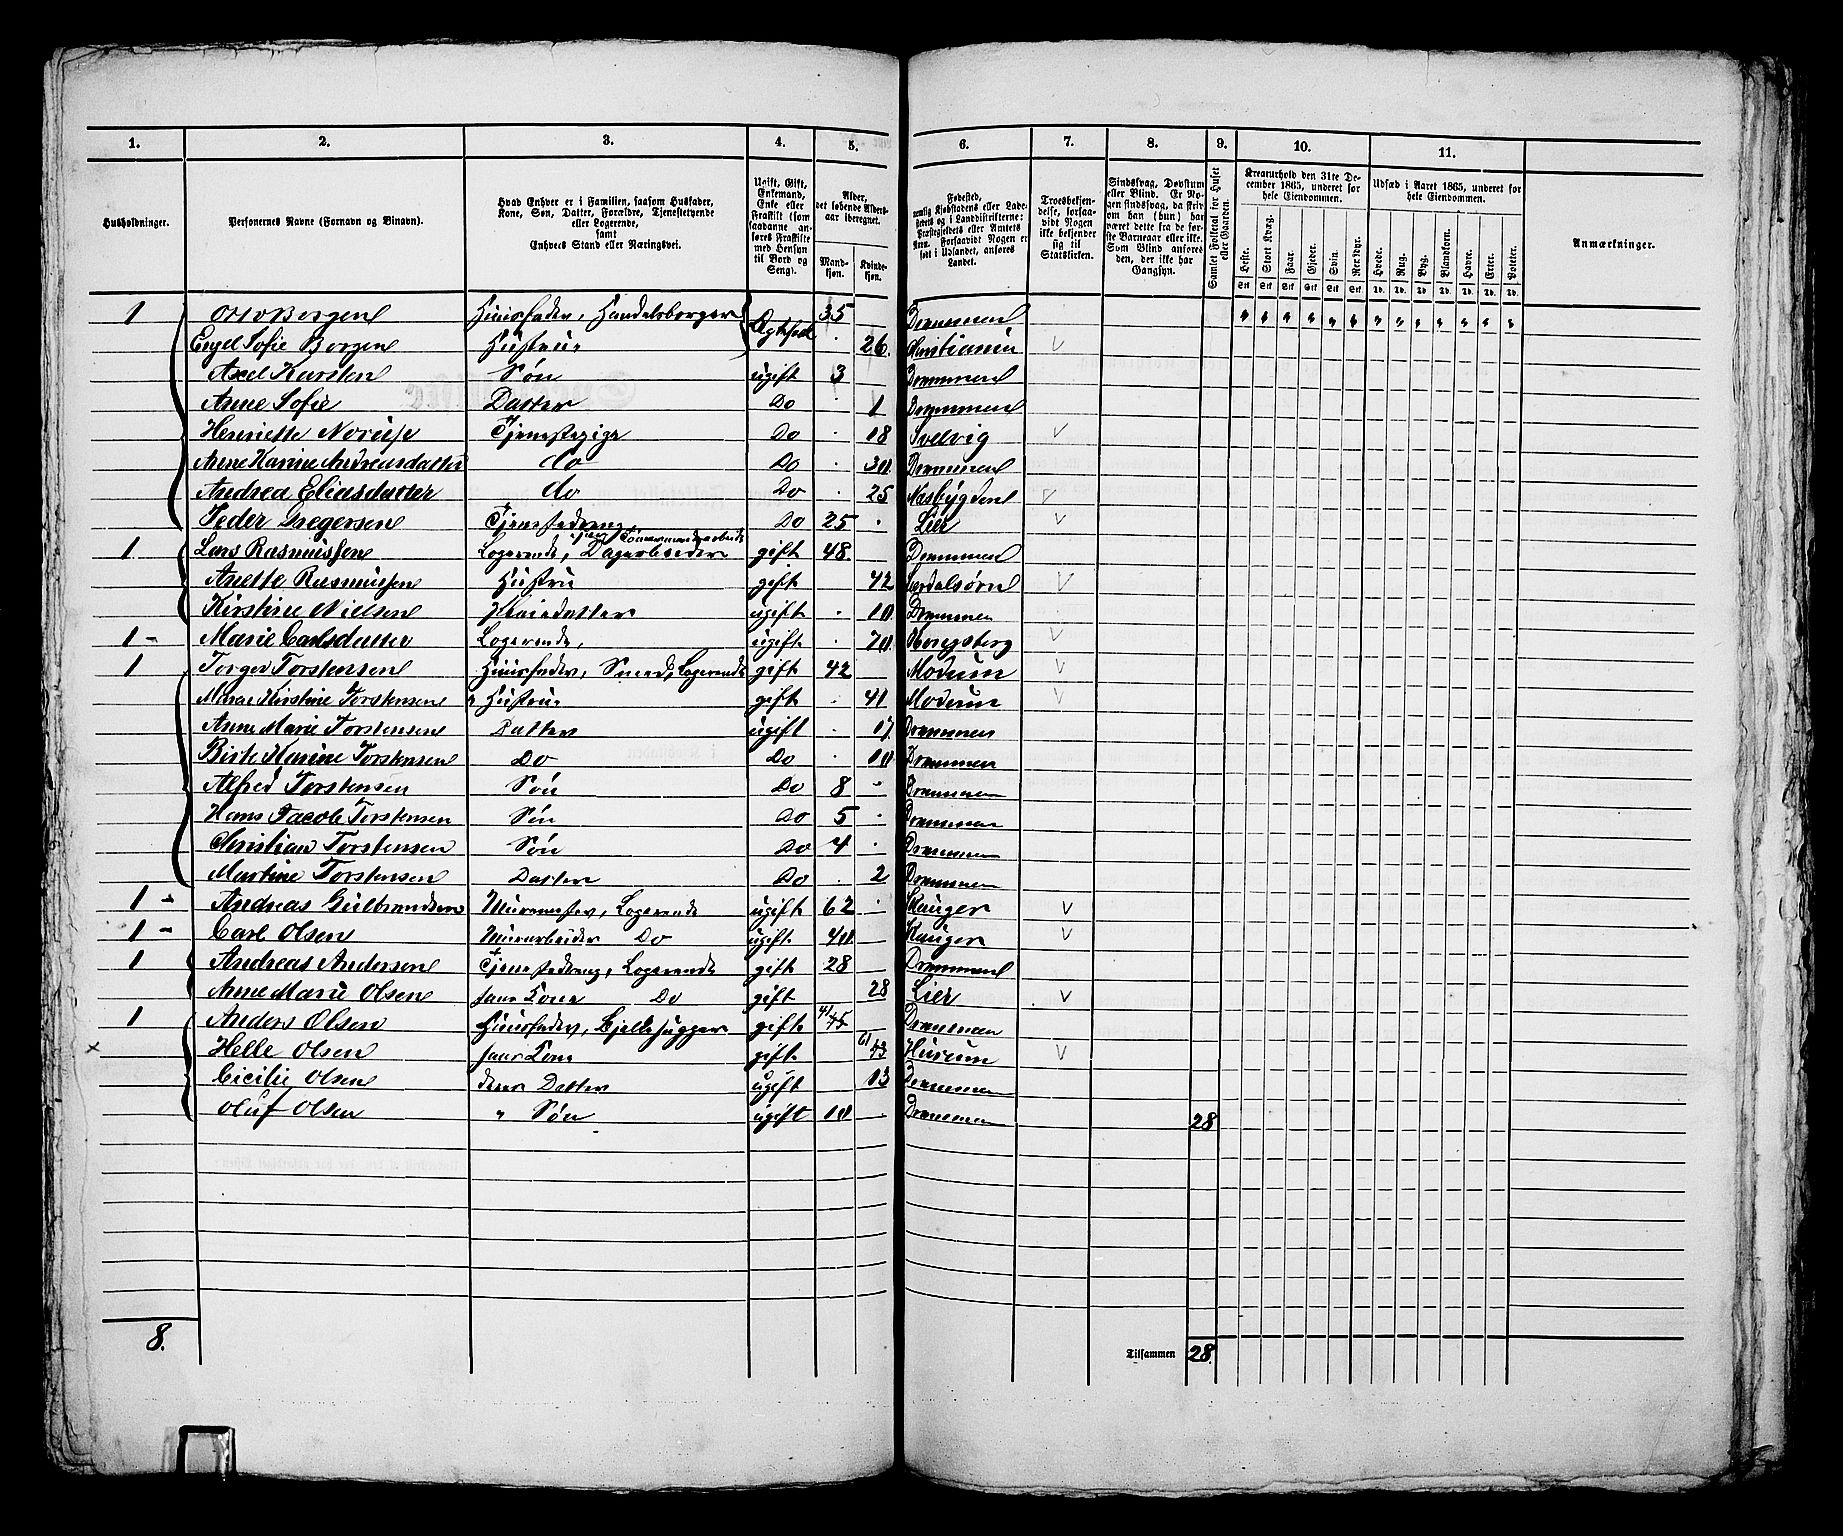 1. 2. 3. 4. 5. 6. 7. 8. 9. 10. 11.
Husholdninger.
Personernes Navne (Fornavn og Binavn).
Hvad Enhver er i Familien, saasom Husfader, Kone, Søn, Datter, Forældre, Tjenestetyende eller Logerende, samt Enhvers Stand eller Næringsvei.
Ugift, Gift, Enkemand, Enke eller Fraskilt (som saadanne anføres Fraskilte med Hensyn til Bord og Seng).
Alder, det løbende Aldersaar iberegnet.
Mandkjøn. Kvindekjøn.
Fødested,
Troesbekjendelse, forsaavidt Nogen ikke bekjender sig til Statskirken.
Sindssvag, Døvstum eller Blind. Er Nogen sindssvag, da skrives om han (hun) har været dette fra de første Barneaar eller ikke. Som Blind anføres den, der ikke har Gangsyn.
Samlet Folketal for Huset eller Gaarden.
Kreaturhold den 31te December 1865, underet for hele Eiendommen.
Heste. Stort Kvæg. Faar. Gjeder. Svin. Rensdyr.
Udsæd i Aaret 1865, underet for hele Eiendommen.
Hvede. Rug. Byg. Blandkorn. Havre. Erter. Poteter.
Anmærkninger.
1 Otto Borgen Huusfader, Handelsborger Ægtefolk 35 Drammen
Engel Sofie Borgen Hustrue 26 Christiania
Axel Karsten Søn ugift 3 Drammen
Anne Sofie Datter Do 1 Drammen
Henriette Tjenestepige Do 18 Svelvig
Anne Karine Andreasdatter do Do 30 Drammen
Andrea Eliasdatter do Do 25 Næsbygden
Peder Gregersen Tjenestedreng Do 25 Lier
1 Lars Rasmussen Logerende, Dagarbeider gift 48 Drammen
Anette Rasmussen Hustru gift 42 Lærdalsøren
Kirstine Nielsen Pleiedatter ugift 10 Drammen
1 - Marie Carlsdatter Logerende, ugift 70 Kongsberg
1 Torger Torstensen Huusfader, Smed, Logerende gift 42 Modum
Maren Kirstine Torstensen Hustrue gift 41 Modum
Anne Marie Torstensen Datter ugift 17 Drammen
Birte Marine Torstensen Do Do 10 Drammen
Alfred Torstensen Søn Do 8 Drammen
Hans Jacob Torstensen Søn Do 5 Drammen
Christian Torstensen Søn Do 4 Drammen
Martine Torstensen Datter Do 2 Drammen
1 - Andreas Gulbrandsen Muremester, Logerende ugift 62 Skauger
1 - Carl Olsen Murarbeider Do ugift 40 Skauger
1 Andreas Andersen Tjenestedreng, Logerende gift 28 Drammen
Anne Marie Olsen hans Kone Do gift 28 Lier
1 Anders Olsen Huusfader, Bjelkehugger gift 45 Drammen
Helle Olsen hans Kone gift Hurum
Cicilie Olsen deres Datter ugift 13 Drammen
Oluf Olsen " Søn ugift 10 Drammen 28
8.
Tilsammen 28